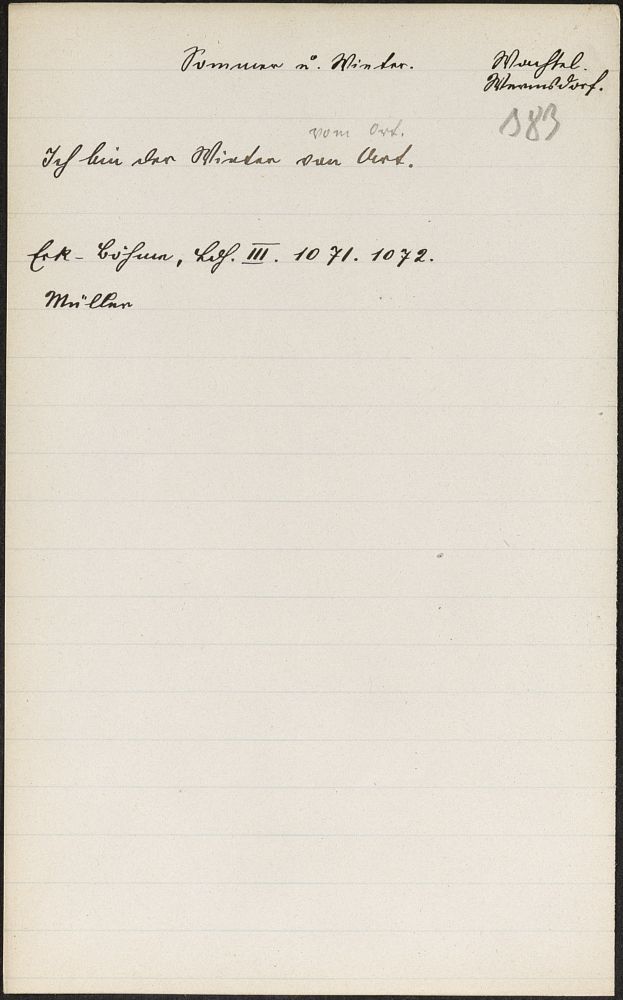 Sommer u. Winter.
Wachtel.
Wermsdorf.
183
vom Ort.
Ich bin der Winter von Ort.
Erk-Böhme, Ldh. III. 1071. 1072.
Müller